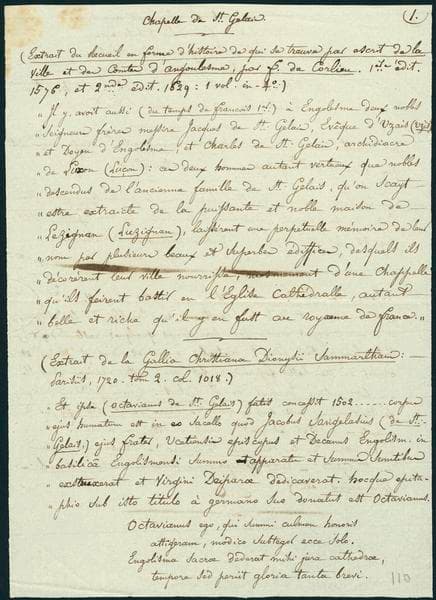 Chapelle de St. Gelais.
(1.
(Extrait du Recueil en forme d'histoire de qui se trouve par escrit de la
Ville et des Comtes d'angoulesme, par f. de Corlieu. 1ere édit.
1576, et 2nde édit. 1629 : 1 vol. in-4°.)
" Il y avoit aussi (du temps de francois 1er.) à Engolesme deux nobles
" Seigneurs frères messire Jacques de St. Gelais, Evêque d'Uzais (Uzès)
" et Doyen d'Engolesme et Charles de St. Gelais, archidiacre
" de Luxon (Luçon) : ces deux hommes autant vertueux que nobles
" descendus de l'ancienne famille de St. Gelais, qu'on Scayt
" estre extraicte de la puissante et noble maison de
" Lezignan (Luzignan), laissèrent une perpetuelle mémoire de leur
" nom par plusieurs beaux et superbes édifices, desquels ils
" décorèrent leur ville nourrisse, mesmement d'une Chappelle
" qu'ils feirent bastir en l'Eglise Cathédralle, autant
" belle et riche qu'il n'y en fust au royaume de france. "
(Extrait de la Gallia Christiana Dionysii Sammarthani :
Parisiis, 1720. tom 2. col. 1018.)
" Et ipse (octavianus de St. Gelais) fatis concessit 1502 ..... corpus
" ejus humatum est in eo Sacello quod Jacobus Sangelasius (de St.
" Gelais) ejus frater, Uceticensis episcopus et Decanus Engolism. in
" basilicâ Engolismensi Summo apparatu et Summis Sumtibus
" exstruxerat et Virgini Deiparae dedicaverat. hocque epita-
" phio sub isto titulo à germano suo donatus est Octavianus.
Octavianus ego, qui summi culmen honoris
attigeram, modico Subtegor ecce Solo.
Engolisma sacrae dederat mihi jura cathedrae,
tempore sed periit gloria tanta brevi.
110